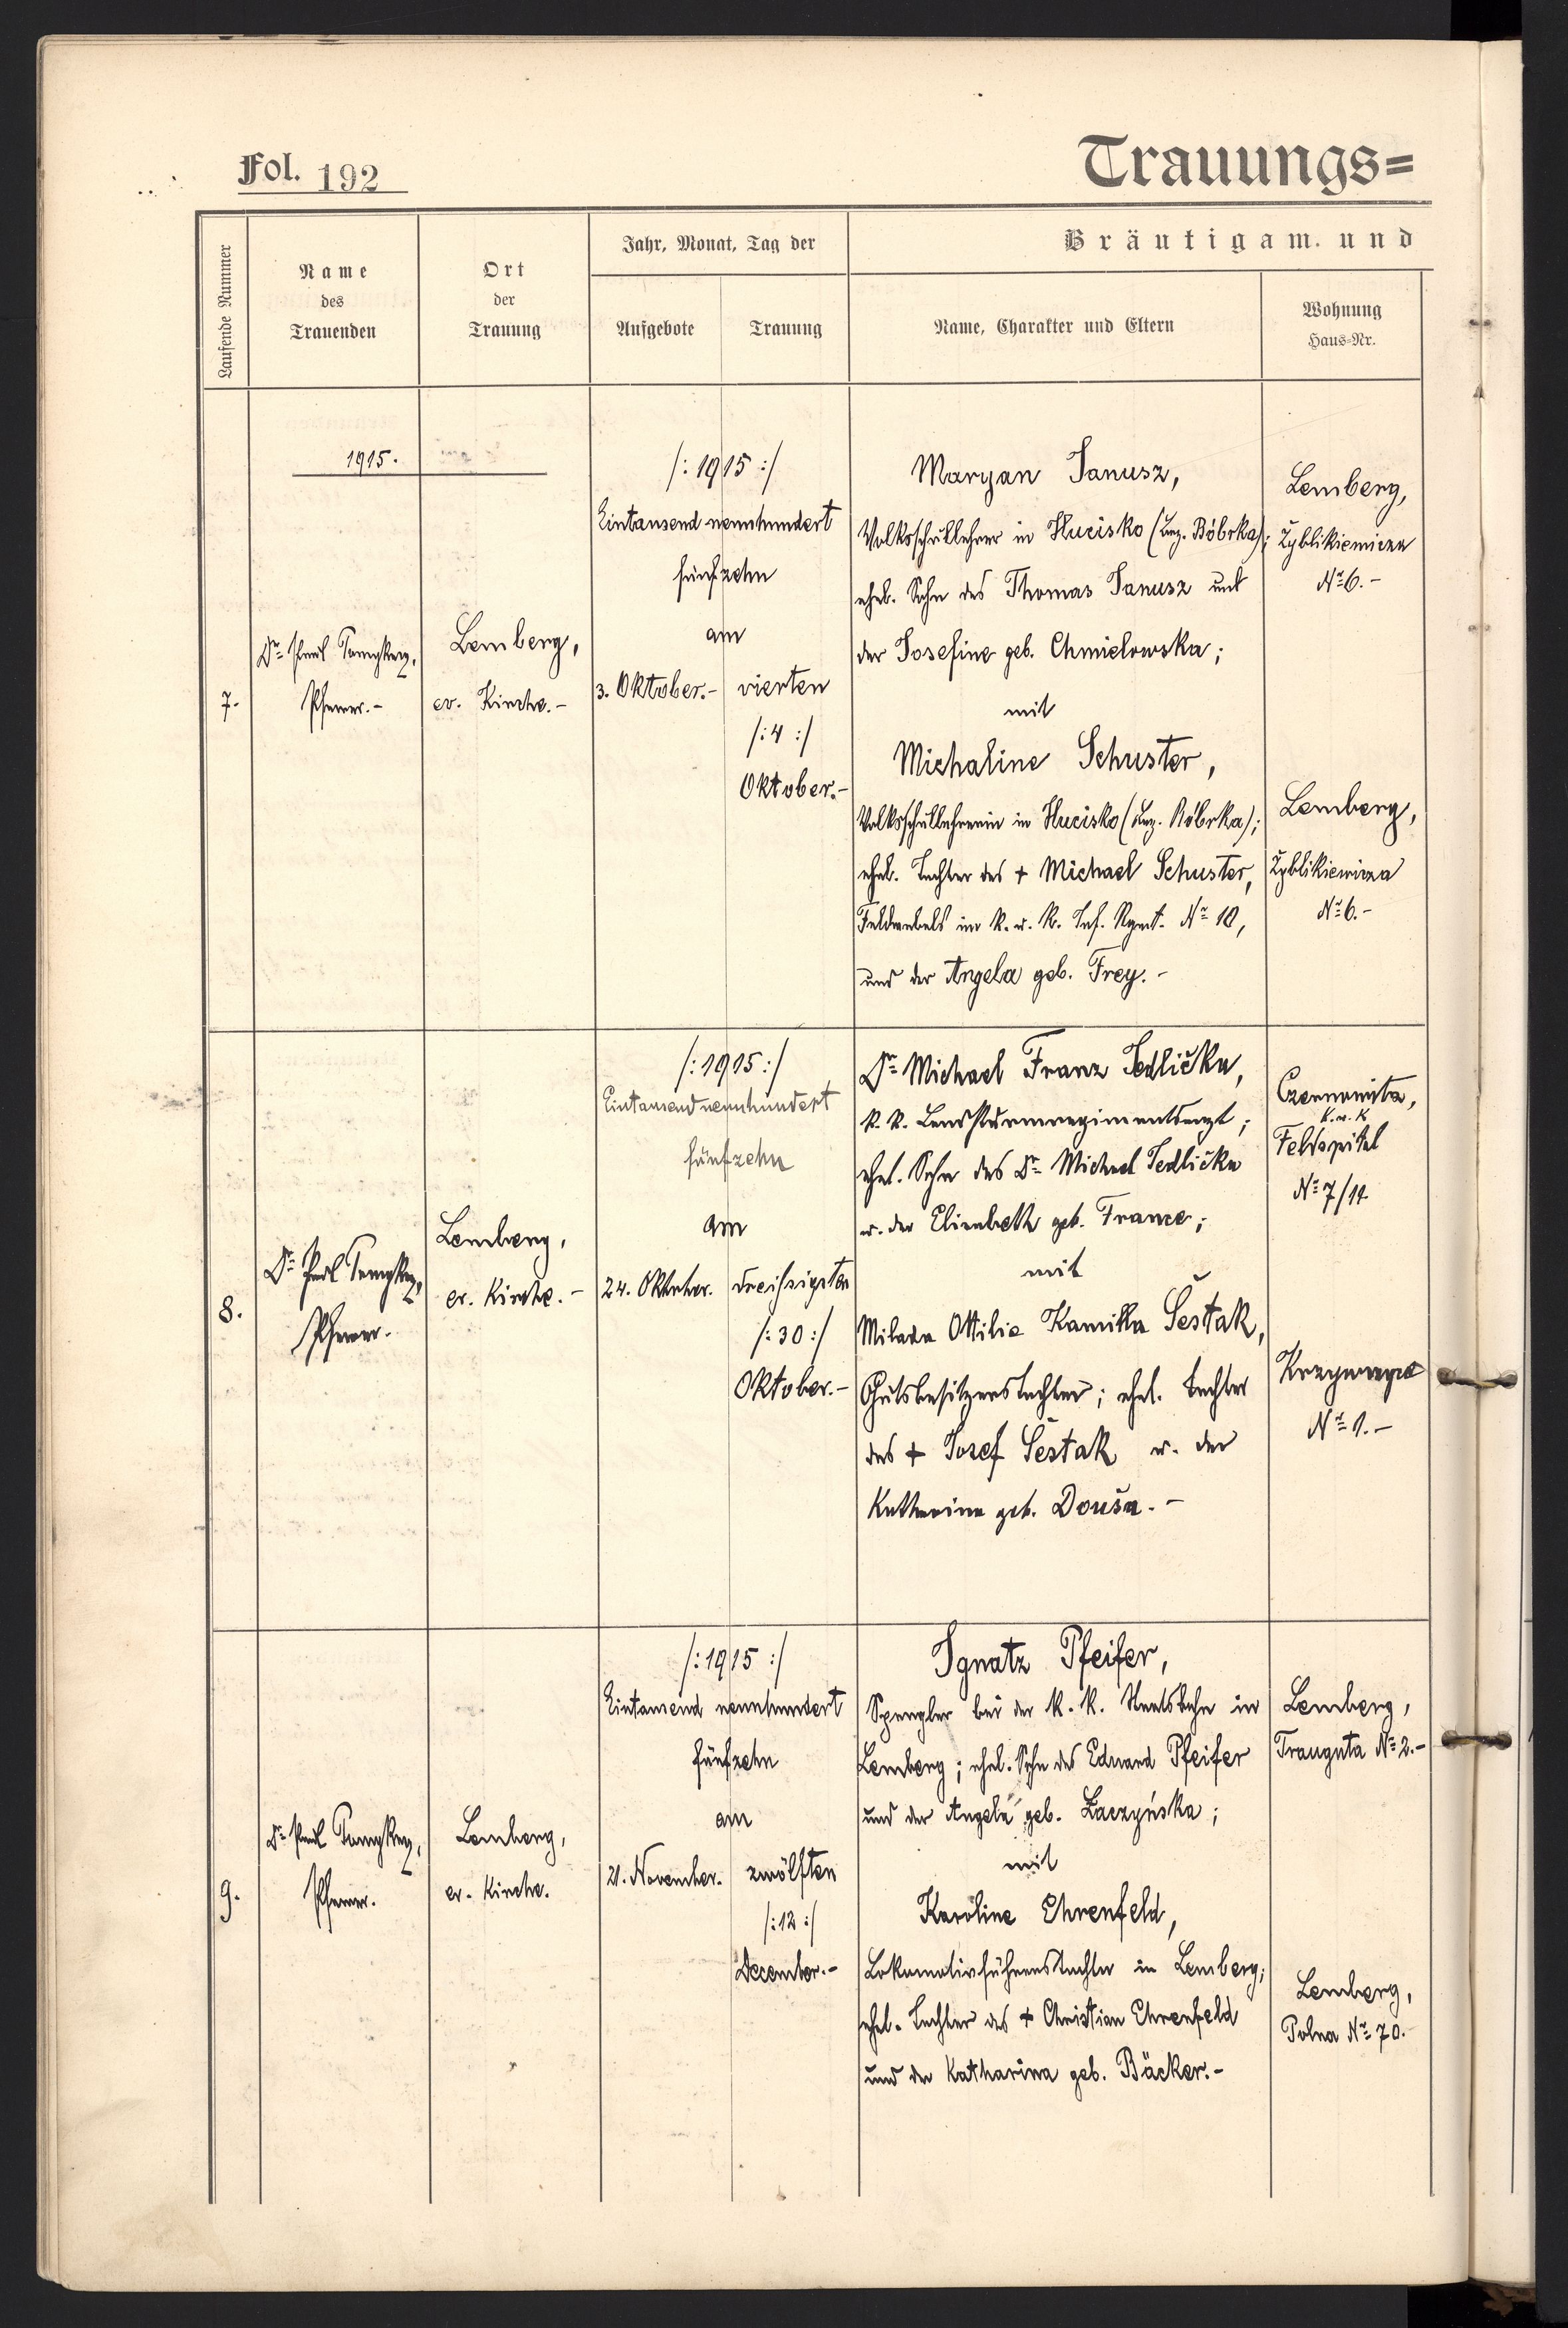 Fol. 192
Trauungs=
Laufende Nummer
Name
des
Trauenden
Ort
der
Trauung
Jahr, Monat, Tag der
Aufgebote
Trauung
Bräutigam und
Name, Charakter und Eltern
Wohnung
Haus=Nr.
1915.
7.
Dr. Paul
Pfarrer.-
Lemberg,
ev. Kirche.-
/: 1915 :/
Eintausend neunhundert
fünfzehn
am
3. Oktober.-
vierten
/: 4 :/
Oktober.-
Maryan Janusz,
Volksschullehrer in Hucisko (Bez. Bóbrka);
ehel. Sohn des Thomas Janusz und
der Josefine geb. Chmielowska;
mit
Michaline Schuster,
Volksschullehrerin in Hucisko (Bez. Bóbrka);
ehel. Tochter des + Michael Schuster,
Feldwebels im k. u. k. Inf. Rgmt. Nr. 10,
und der Angela geb. Frey.-
Lemberg,
Zyblikiewicza
Nr. 6.-
Lemberg,
Zyblikiewicza
Nr. 6.-
8.
Dr. Paul
Pfarrer.
Lemberg,
ev. Kirche.-
/: 1915 :/
Eintausend neunhundert
fünfzehn
am
24. Oktober.
dreissigsten
/: 30 :/
Oktober.-
Dr. Michael Franz Jedlička,
k. k. Landsturmregimentsarzt;
ehel. Sohn des Dr. Michael Jedlička
u. der Elisabeth geb. France;
mit
Milada Ottilie Kamilla Šesták,
Gutsbesitzerstochter; ehel. Tochter
des + Josef Šesták u. der
Katharina geb. Douša.-
k. u. k
Feldspital
Nr. 7/14
Krzywczyce
Nr. 1.-
9.
Dr. Paul
Pfarrer.
Lemberg,
ev. Kirche.
/: 1915 :/
Eintausend neunhundert
fünfzehn
am
21. November.
zwölften
/: 12 :/
December.-
Ignatz Pfeifer,
Spengler bei der k. k. Staatsbahn in
Lemberg; ehel. Sohn des Eduard Pfeifer
und der Angela geb. Łaczyńska;
mit
Karoline Ehrenfeld,
Lokomotivführerstochter in Lemberg;
ehel. Tochter des + Christian Ehrenfeld
und der Katharina geb. Bäcker.-
Lemberg,
Trauguta Nr. 2.-
Lemberg,
Polna Nr. 70.